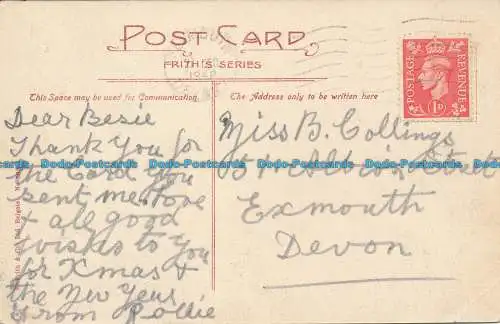 POST CARD
FRITH'S SERIES
This Space may be used for Communication.
The Address only to be written here
POSTAGE REVENUE
1D
Dear Besie
Thank You for
the Card You
sent me Love
& all good
Wishes to You
for Xmas &
the New Year
From Pollie
Miss B. Collings
Albion Street
Exmouth
Devon
Dodo-Postcards Dodo-Postcards Dodo-Postcards Dodo-Postcards
Dodo-Postcards Dodo-Postcards Dodo-Postcards Dodo-Postcards